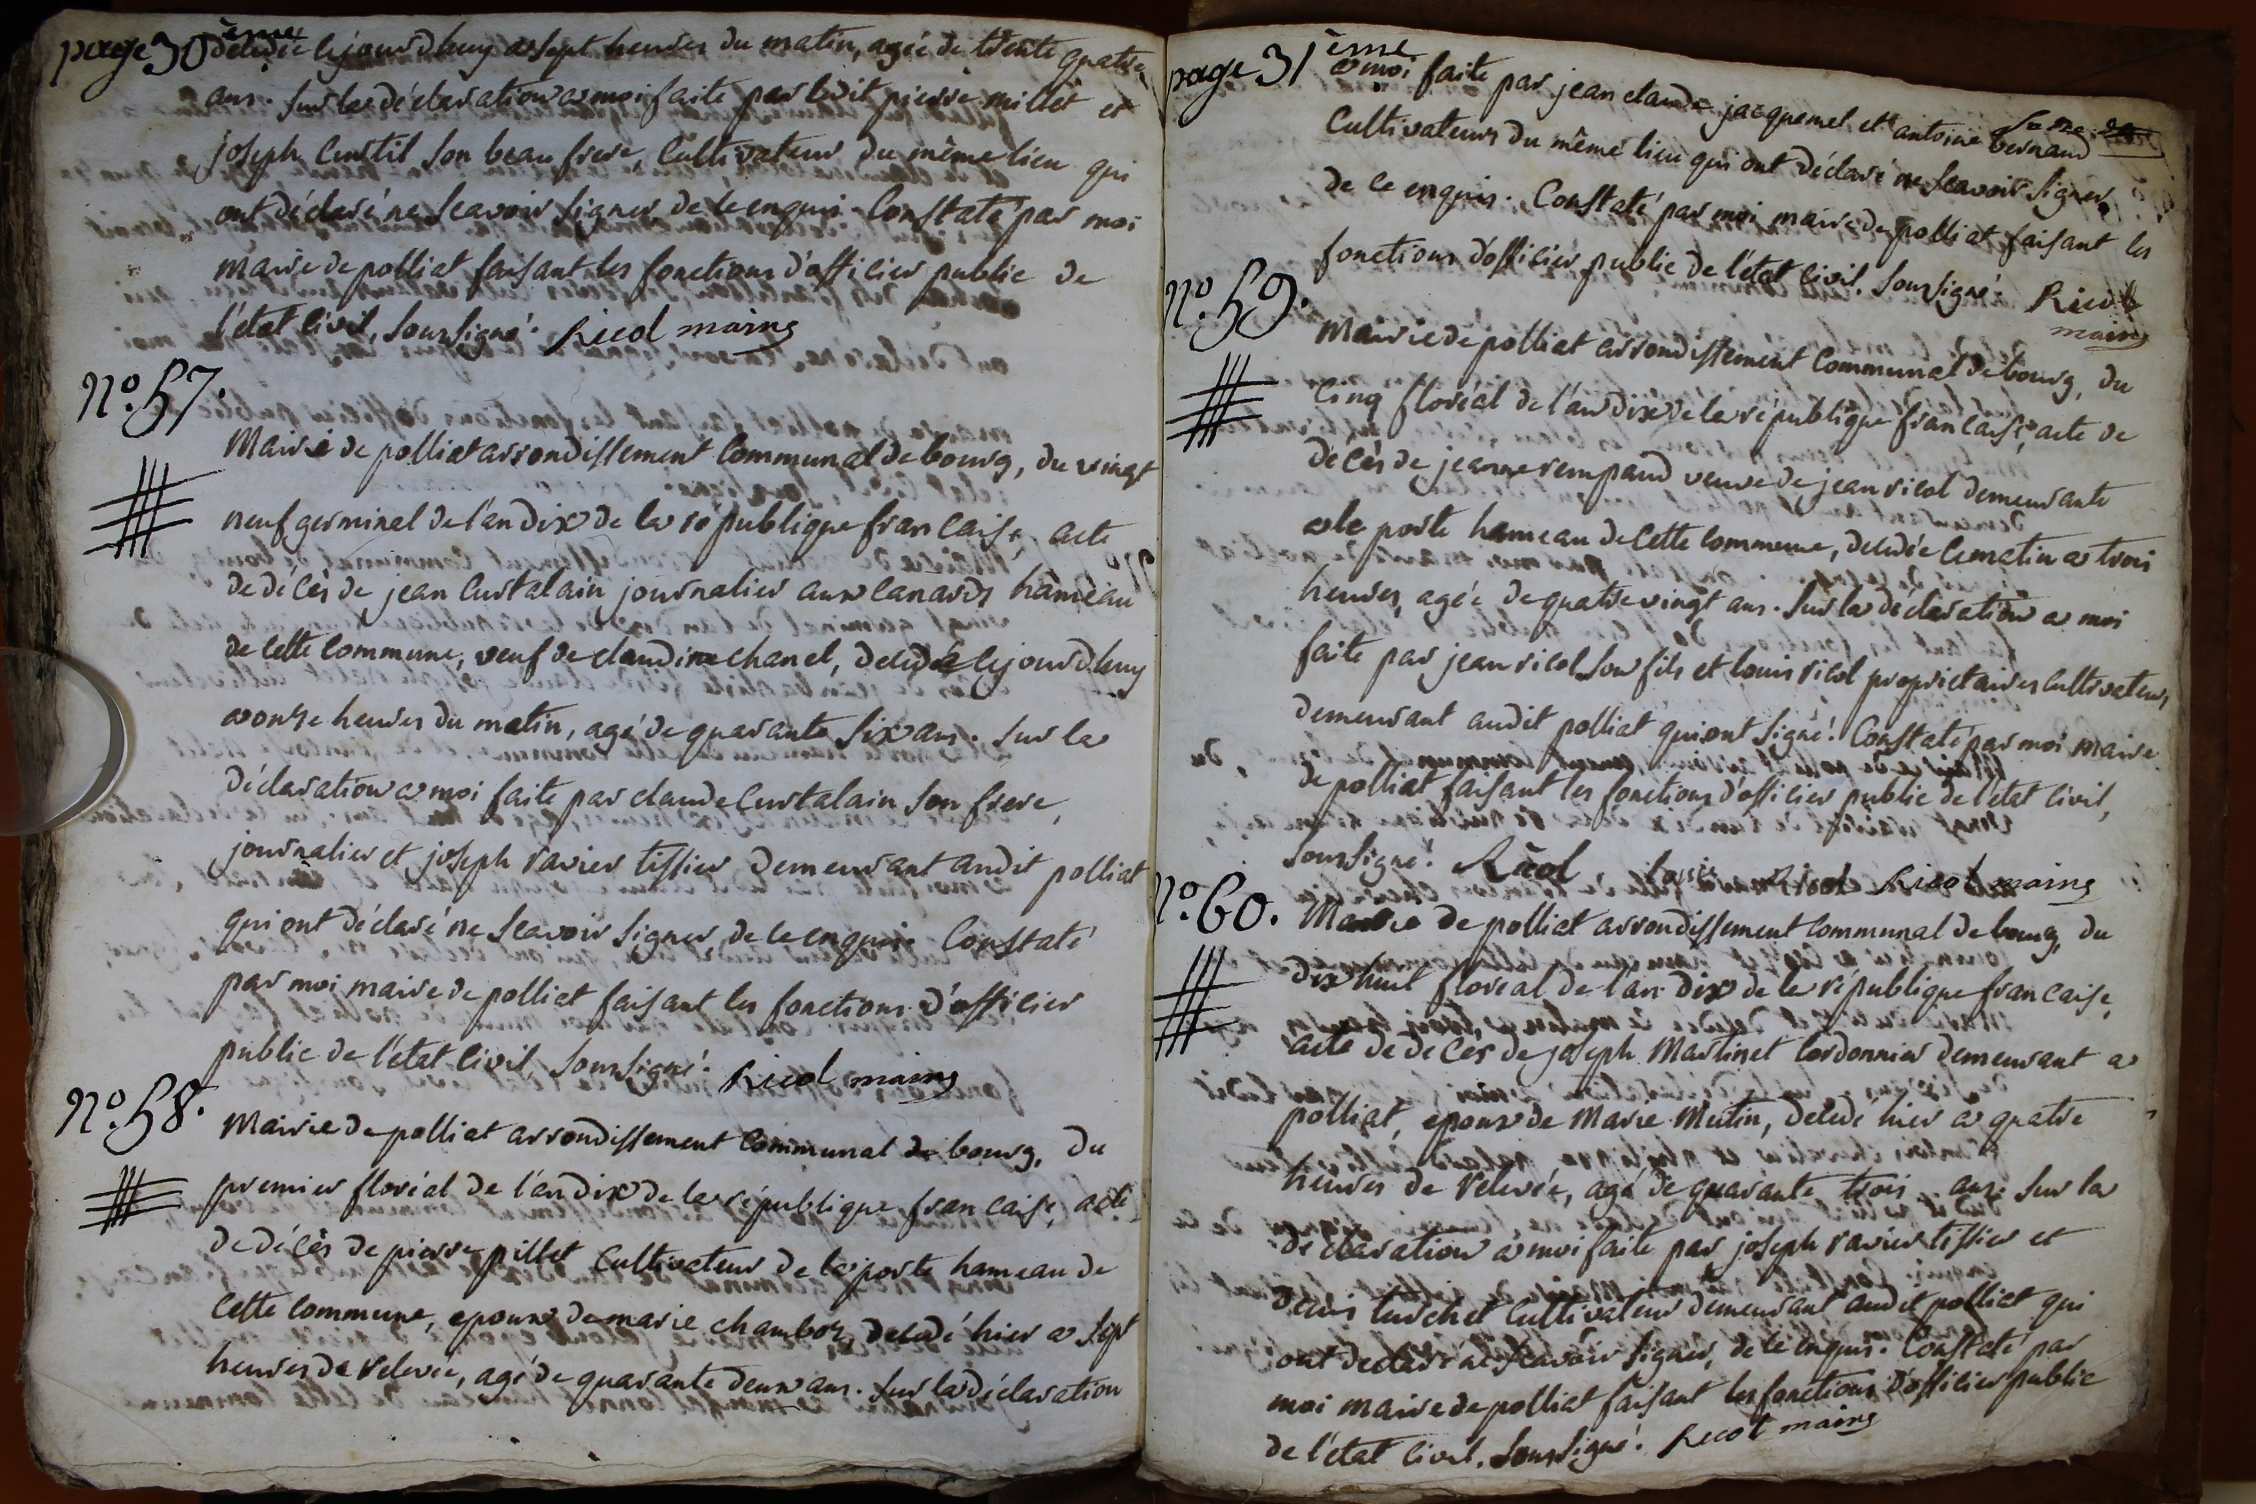 page 30ème
decedée cejourdhuy a sept heures du matin, agée de trente quatre
ans. Sur la déclaration a moi faite par ledit pierre millet et
joseph Curtil son beau frere, Cultivateur du même lieu qui
ont déclaré ne Scavoir Signer de ce enquis. Constaté par moi
maire de polliat faisant les fonctions d'officier public de
l'état Civil, Soussigné. Ricol maire
N°. 57.
Mairie de polliat arrondissement Communal de bourg, du vingt
neuf germinal de l'an dix de la republique francaise, acte
de décès de jean Curtalain journalier aux canards hameau
de cette Commune, veuf de claudine chanel, decedé cejourdhuy
a onze heures du matin, agé de quarante Six ans. Sur la
déclaration a moi faite par claude Curtalain Son frere,
journalier et joseph ravier tissier demeurant audit polliat
qui ont déclaré ne Scavoir Signer, de ce enquis. Constaté
par moi maire de polliat faisant les fonctions d'officier
public de l'état Civil, Soussigné. Ricol maire
N°. 58.
Mairie de polliat arrondissement Communal de bourg, du
premier floréal de l'an dix de la république francaise, acte
de décès de pierre pillet Cultivateur de la poste hameau de
Cette Commune, epoux de marie chamboz, decedé hier a Sept
heures de relevée, agé de quarante deux ans. Sur la déclaration
page 31ème
a moi faite par jean claude jacquemel et antoine bernard
Cultivateurs du même lieu qui ont déclaré ne Scavoir Signer
de ce enquis. Constaté par moi maire de polliat faisant les
fonctions d'officier public de l'état Civil, Soussigné. Ricol
maire
N°. 59.
Mairie de polliat arrondissement Communal de bourg, du
Cinq floréal de l'an dix de la république francaise, acte de
décès de jeanne rempaud veuve de jean ricol demeurante
a la poste hameau de Cette Commune, decedée ce matin a trois
heures, agée de quatre vingt ans. Sur la déclaration a moi
faite par jean ricol Son fils et louis ricol proprietaires Cultivateurs
demeurant audit polliat qui ont Signé. Constaté par moi maire
de polliat faisant les fonctions d'officier public de l'état Civil,
Soussigné. Ricol louis Ricol Ricol maire
N°. 60.
Mairie de polliat arrondissement Communal de bourg, du
dix huit floréal de l'an dix de la république francaise,
acte de décès de joseph Martinet Cordonnier demeurant a
polliat, epoux de Marie Mutin, decedé hier a quatre
heures de relevée, agé de quarante trois ans. Sur la
déclaration a moi faite par joseph ravier tissier et
denis turchet Cultivateur demeurant audit polliat qui
ont declaré ne Scavoir Signer, de ce enquis. Constaté par
moi maire de polliat faisant les fonctions d'officier public
de l'état Civil, Soussigné. Ricol maire